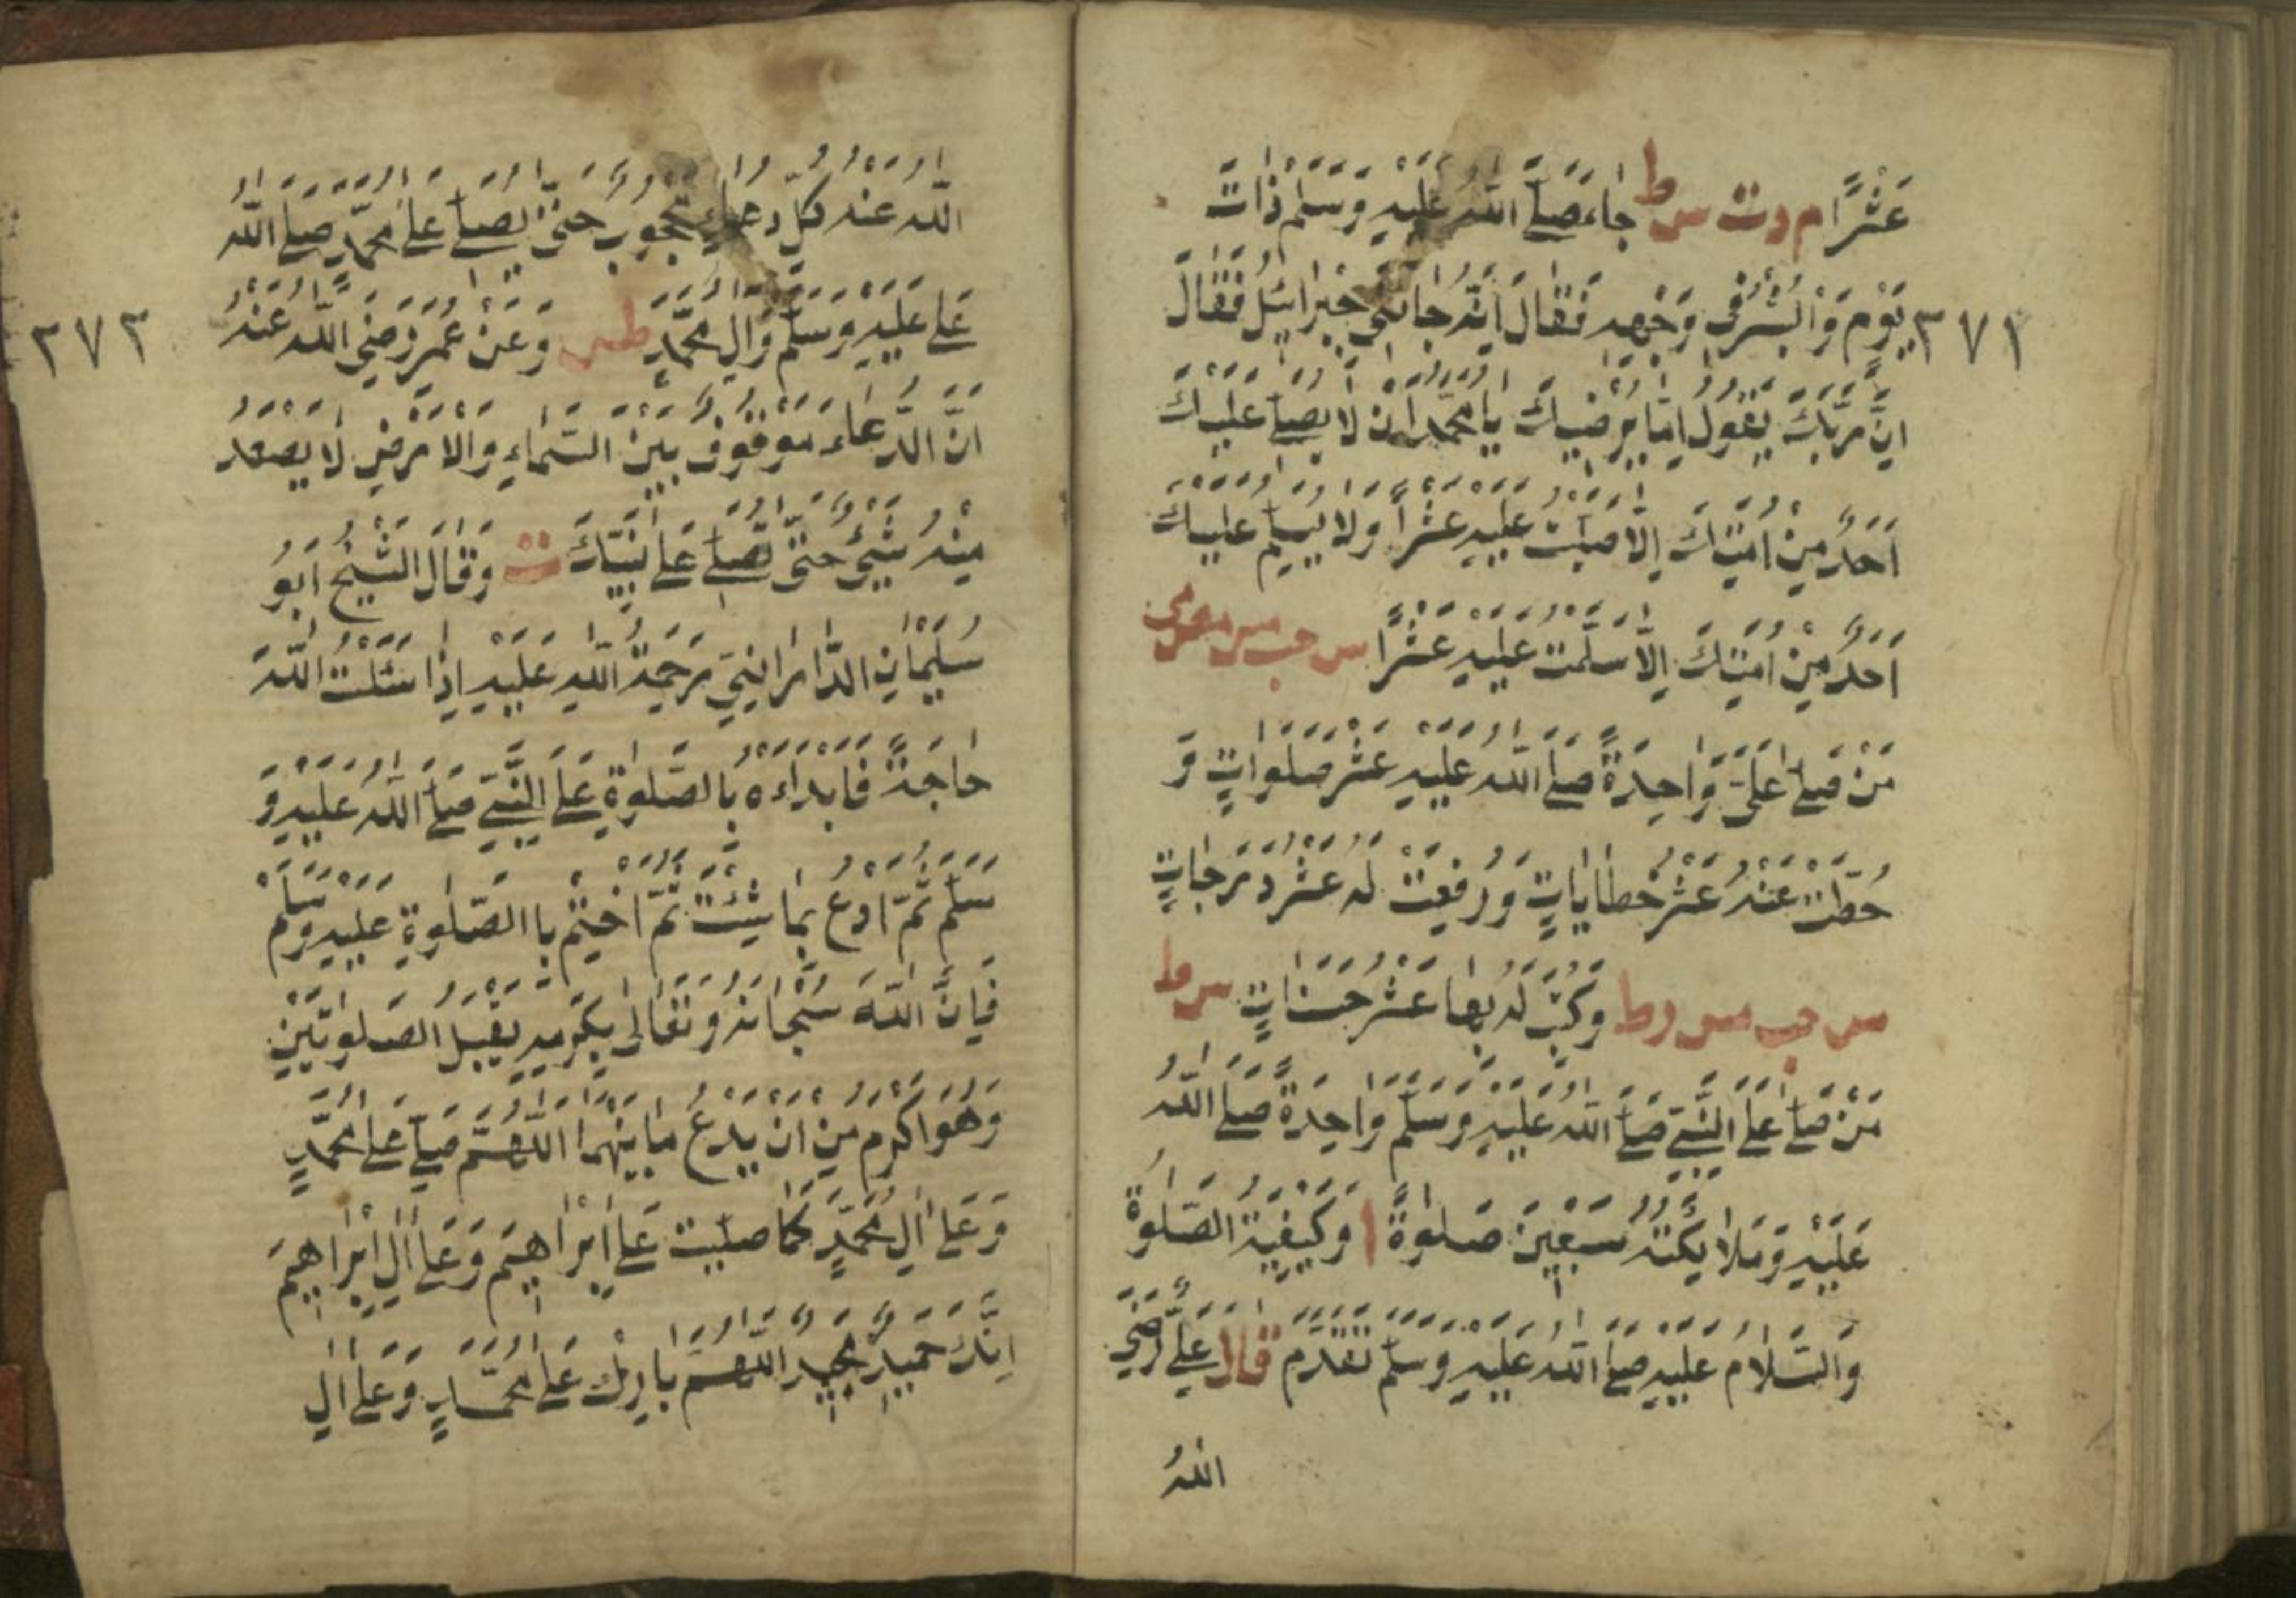 عَشْرًا م د ت س ط جَاءَ صَلَّى اللّٰهُ عَلَيْهِ وَسَلَّمَ ذَاتَ
٣٧٢
يَوْمٍ وَالْبُشْرٰى فِى وَجْهِهِ فَقَالَ اِنَّهُ جَاءَنِى جَبْرَائِيلُ فَقَالَ
اِنَّ رَبَّكَ يَقُولُ اَمَا يُرْضِيكَ يَا مُحَمَّدُ اَنْ لَا يُصَلِّى عَلَيْكَ
اَحَدٌ مِنْ اُمَّتِكَ اِلَّا صَلَّيْتُ عَلَيْهِ عَشْرًا وَلَا يُسَلِّمُ عَلَيْكَ
اَحَدٌ مِنْ اُمَّتِكَ اِلَّا سَلَّمْتُ عَلَيْهِ عَشْرًا س حب مس مص مى
مَنْ صَلَّى عَلَىَّ وَاحِدَةً صَلَّى اللّٰهُ عَلَيْهِ عَشْرَ صَلَوَاتٍ وَ
حُطَّتْ عَنْهُ عَشْرُ خَطَايَاتٍ وَرُفِعَتْ لَهُ عَشْرُ دَرَجَاتٍ
س حب مس ر ط وَكُتِبَ لَهُ بِهَا عَشْرُ حَسَنَاتٍ س ط
مَنْ صَلَّى عَلَى النَّبِىِّ صَلَّى اللّٰهُ عَلَيْهِ وَسَلَّمَ وَاحِدَةً صَلَّى اللّٰهُ
عَلَيْهِ وَمَلَائِكَتُهُ سَبْعِينَ صَلٰوةً ا وَكَيْفِيَّةُ الصَّلٰوةِ
وَالسَّلَامِ عَلَيْهِ صَلَّى اللّٰهُ عَلَيْهِ وَسَلَّمَ تَقَدَّمَ قَالَ عَلِىٌّ رَضِىَ
اللّٰهُ
اللّٰهُ عَنْهُ كُلُّ دُعَاءٍ مَحْجُوبٌ حَتّٰى يُصَلّٰى عَلٰى مُحَمَّدٍ صَلَّى اللّٰهُ
٣٧٣
عَلٰى عَلَيْهِ وَسَلَّمَ وَاٰلِ مُحَمَّدٍ طس وَعَنْ عُمَرَ رَضِىَ اللّٰهُ عَنْهُ
اِنَّ الدُّعَاءَ مَوْقُوفٌ بَيْنَ السَّمَاءِ وَالْاَرْضِ لَا يَصْعَدُ
مِنْهُ شَيْئٌ حَتّٰى تُصَلِّىَ عَلٰى نَبِيِّكَ ت وَقَالَ الشَّيْخُ اَبُو
سُلَيْمَانَ الدَّارَانِىُّ رَحْمَةُ اللّٰهِ عَلَيْهِ اِذَا سَئَلْتَ اللّٰهَ
حَاجَةً فَابْدَاءْهُ بِالصَّلٰوةِ عَلَى النَّبِىِّ صَلَّى اللّٰهُ عَلَيْهِ وَ
سَلَّمَ ثُمَّ ادْعُ بِمَا شِئْتَ ثُمَّ اخْتِمْ بِا الصَّلٰوةِ عَلَيْهِ وَسَلَّمَ
فَاِنَّ اللّٰهَ سُبْحَانَهُ وَتَعَالٰى بِكَرَمِهِ يَقْبَلُ الصَّلٰوتَيْنِ
وَهُوَ اَكْرَمُ مِنْ اَنْ يَدَعَ مَا بَيْنَهُمَا اَللّٰهُمَّ صَلِّ عَلٰى مُحَمَّدٍ
وَعَلٰى اٰلِ مُحَمَّدٍ كَمَا صَلَّيْتَ عَلٰى اِبْرَاهِيمَ وَعَلٰى اٰلِ اِبْرَاهِيمَ
اِنَّكَ حَمِيدٌ مَجِيدٌ اَللّٰهُمَّ بَارِكْ عَلٰى مُحَمَّدٍ وَعَلٰى اٰلِ